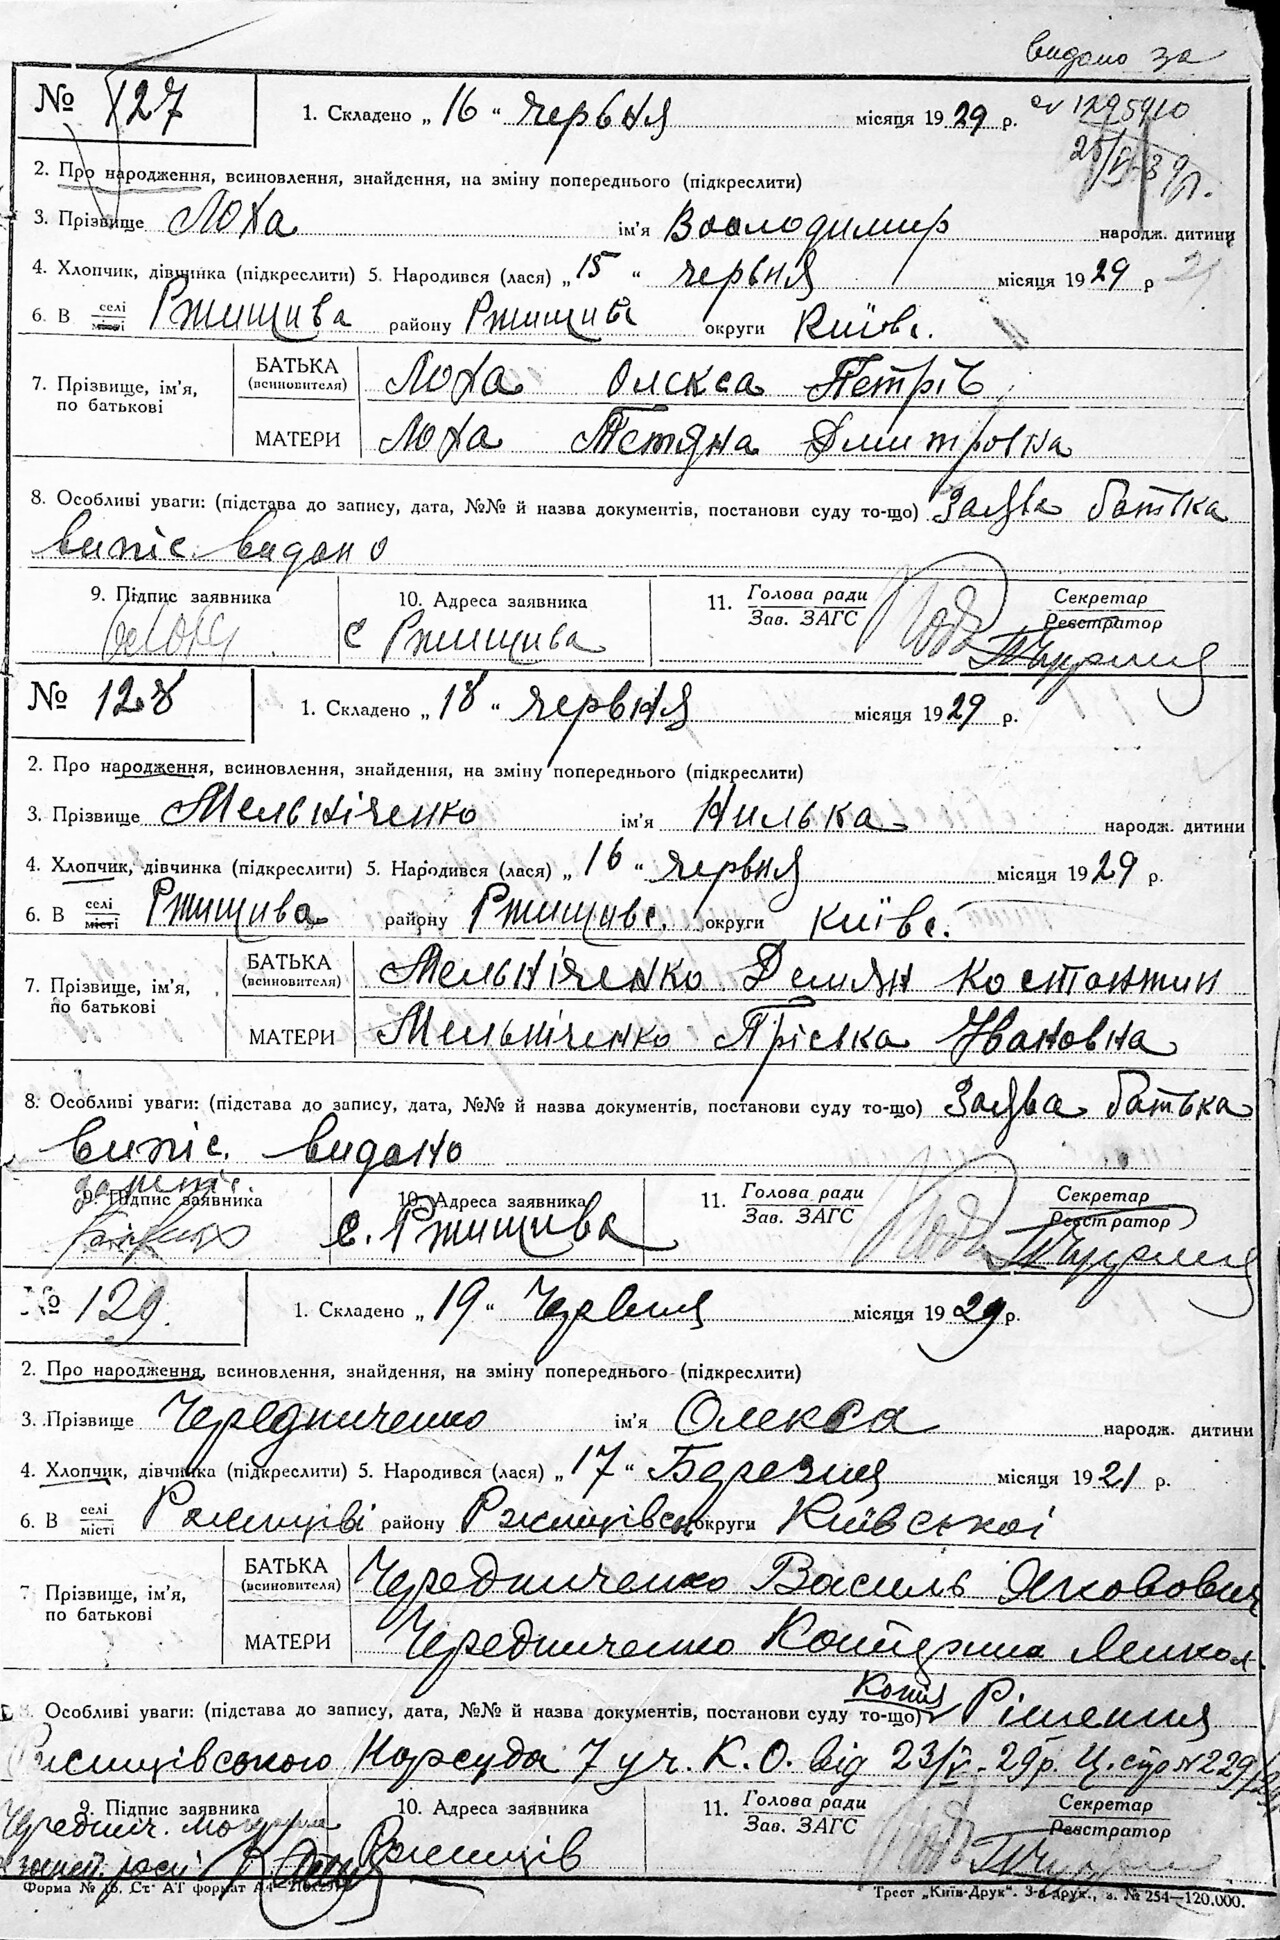 видано за
№ 127 1. Складено „ 16 “ червня місяця 1929 р.
2. Про народження, всиновлення, знайдення, на зміну попереднього (підкреслити)
3. Прізвище Лоха ім'я Воолодимир народж. дитини
4. Хлопчик, дівчинка (підкреслити) 5. Народився (лася) „ 15 “ червня місяця 1929 р
6. В селі/місті Ржищива району Ржищив округи Київс.
7. Прізвище, ім'я, по батькові
БАТЬКА (всиновителя) Лоха Олекса Петрів
МАТЕРИ Лоха Тетяна Дмитровна
8. Особливі уваги: (підстава до запису, дата, №№ й назва документів, постанови суду то-що) Заява батька
випіс. видано
9. Підпис заявника 10. Адреса заявника 11. Голова ради/Зав. ЗАГС Секретар/Реєстратор
с Ржищива
№ 128 1. Складено „ 18 “ червня місяця 1929 р.
2. Про народження, всиновлення, знайдення, на зміну попереднього (підкреслити)
3. Прізвище Мельніченко ім'я Нилька народж. дитини
4. Хлопчик, дівчинка (підкреслити) 5. Народився (лася) „ 16 “ червня місяця 1929 р.
6. В селі/місті Ржищива району Ржищивс. округи Київс.
7. Прізвище, ім'я, по батькові
БАТЬКА (всиновителя) Мельніченко Демян Костонтин
МАТЕРИ Мельніченко Пріська Івановна
8. Особливі уваги: (підстава до запису, дата, №№ й назва документів, постанови суду то-що) Заява батька
випіс. видано
9. Підпис заявника 10. Адреса заявника 11. Голова ради/Зав. ЗАГС Секретар/Реєстратор
с. Ржищива
№ 129. 1. Складено „ 19 “ Червня місяця 1929 р.
2. Про народження, всиновлення, знайдення, на зміну попереднього (підкреслити)
3. Прізвище Чередниченко ім'я Олекса народж. дитини
4. Хлопчик, дівчинка (підкреслити) 5. Народився (лася) „ 17 “ Березня місяця 1921 р.
6. В селі/місті Ржищіві району Ржищівськ округи Київської
7. Прізвище, ім'я, по батькові
БАТЬКА (всиновителя) Чередниченко Василь Якович
МАТЕРИ Чередниченко Катерина Микол
8. Особливі уваги: (підстава до запису, дата, №№ й назва документів, постанови суду то-що) Копія Рішення
Ржищівського Нарсуда 7 уч. К. О. від 23/V-29р. Ц. спр № 229/29
9. Підпис заявника 10. Адреса заявника 11. Голова ради/Зав. ЗАГС Секретар/Реєстратор
Ржищів
Форма № 16. Ст. АТ формат А4—210×297 Трест „Київ-Друк“. 3-я друк., з. № 254—120.000.